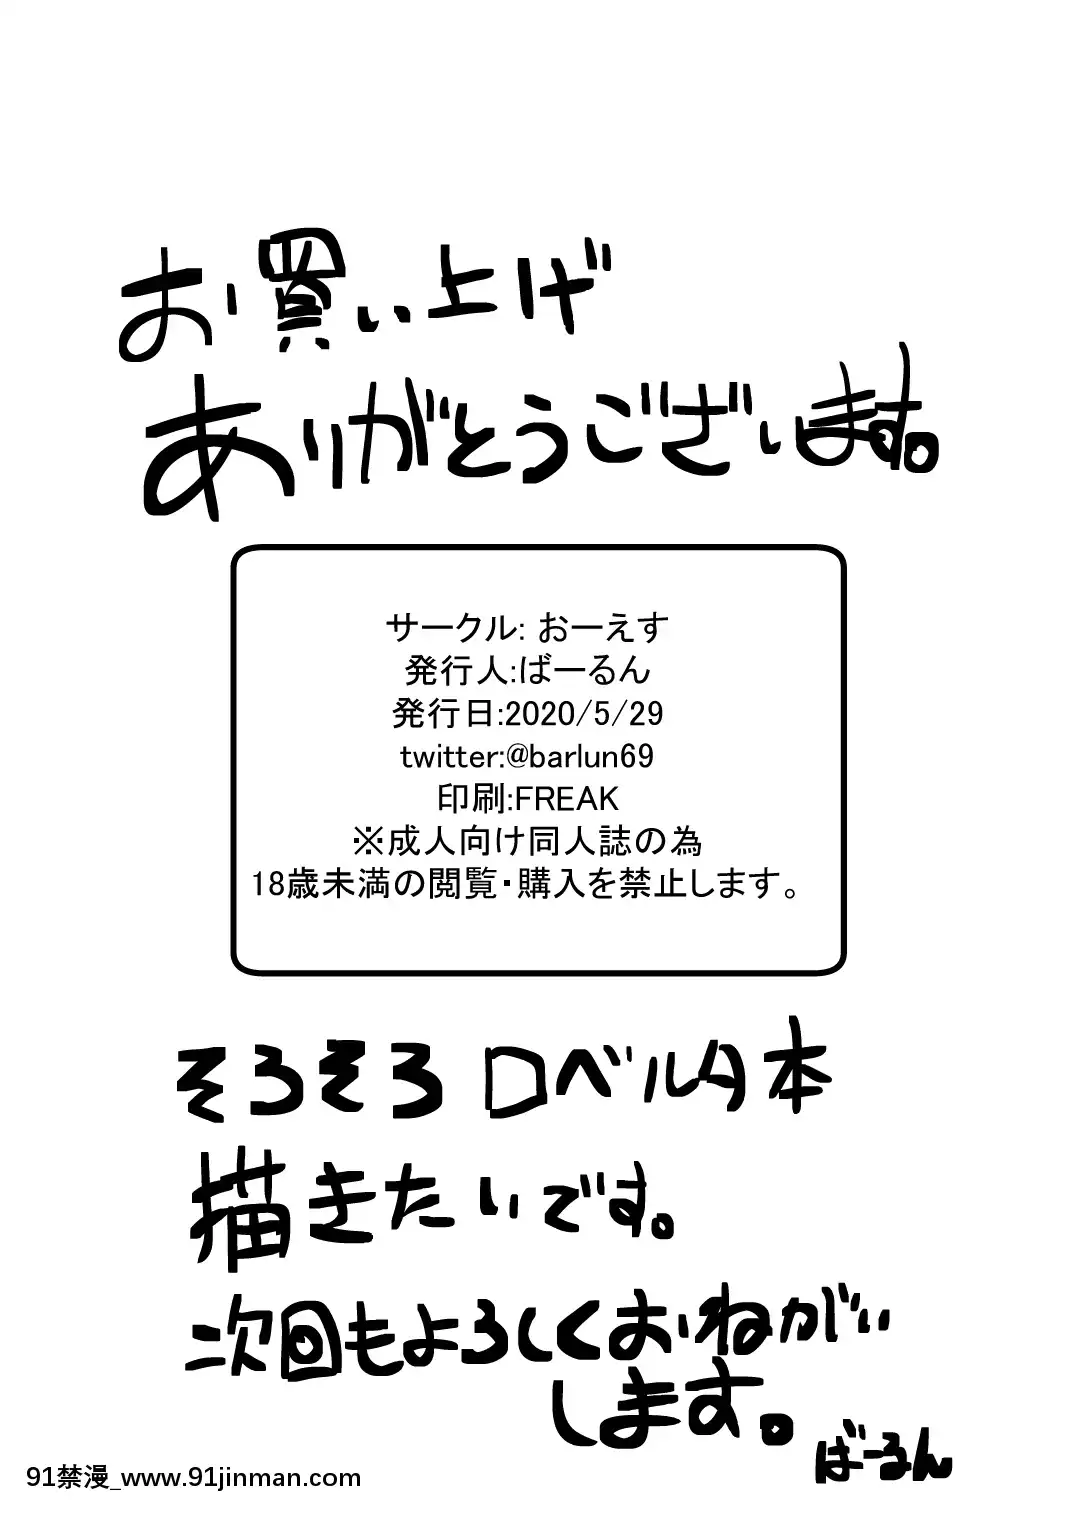 お買い上げ
ありがとうございます。
サークル: おーえす
発行人:ばーるん
発行日:2020/5/29
twitter:@barlun69
印刷:FREAK
※成人向け同人誌の為
18歳未満の閲覧・購入を禁止します。
そろそろロベルタ本
描きたいです。
次回もよろしくおねがい
します。
ばーるん
91禁漫_www.91jinman.com